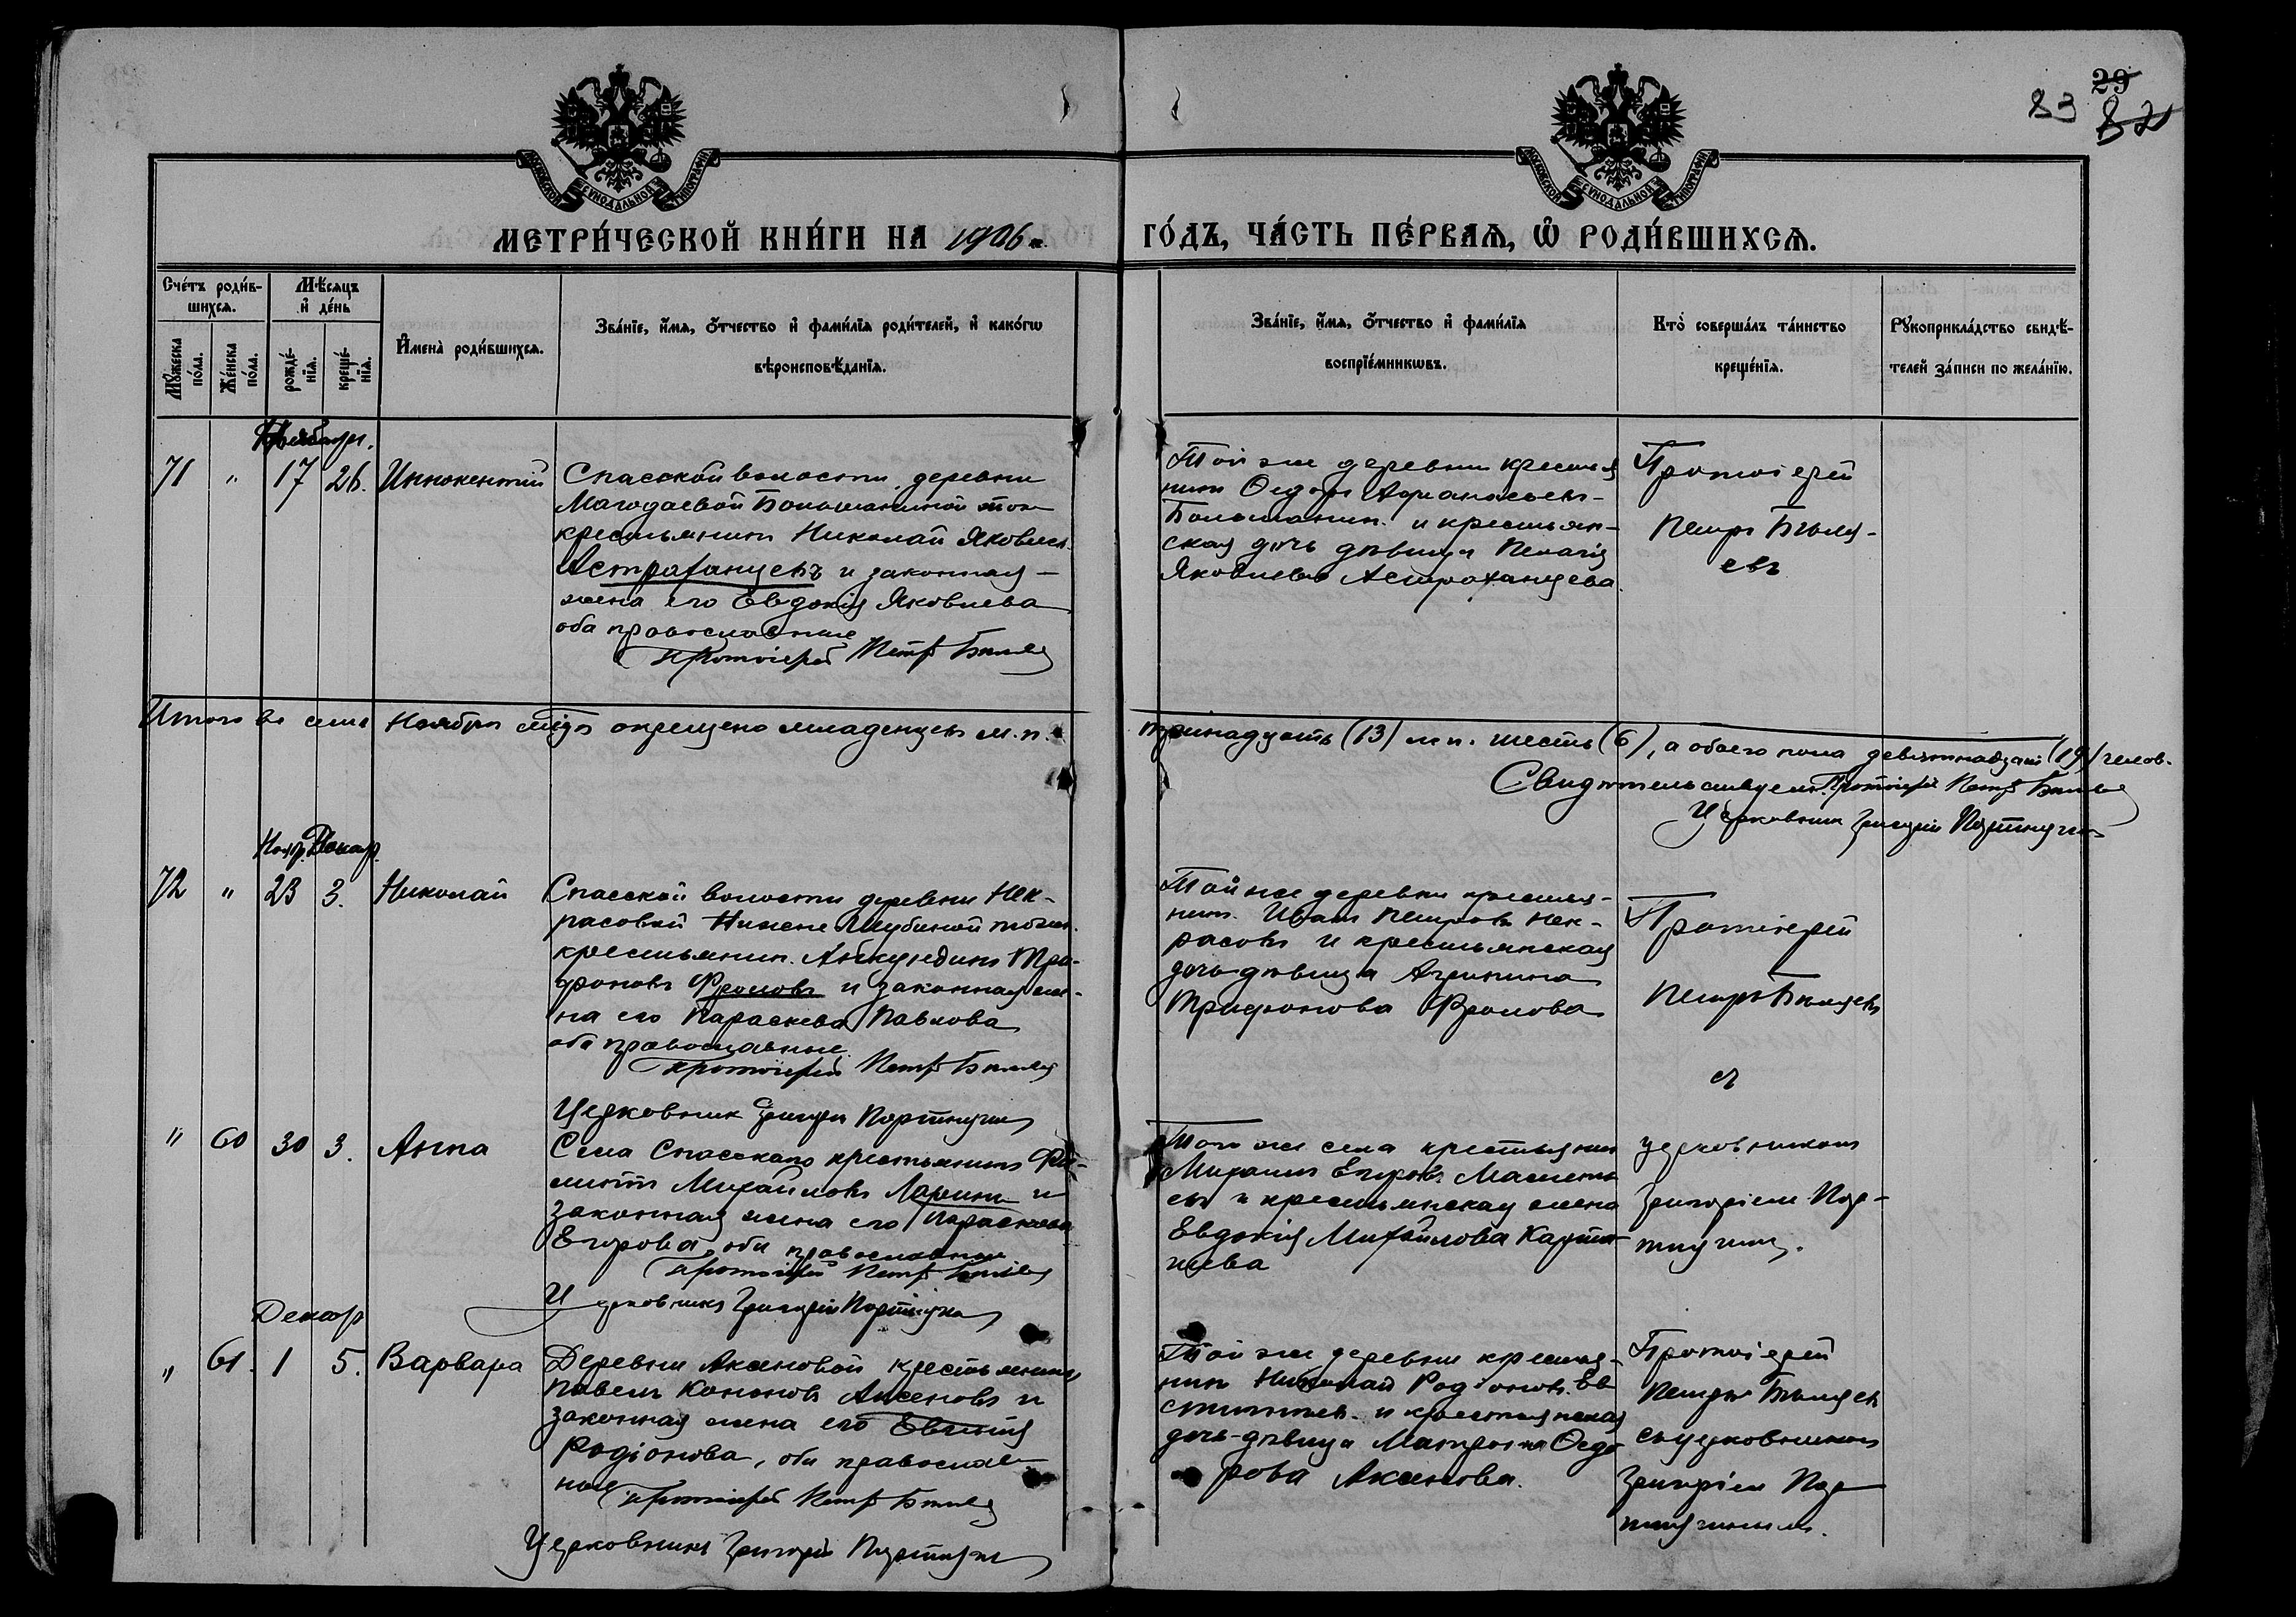 29
83 82
МОСКОВСКОЙ СѴНОДАЛЬНОЙ ТИПОГРАФІИ
МОСКОВСКОЙ СѴНОДАЛЬНОЙ ТИПОГРАФІИ
МЕТРИ́ЧЕСКОЙ КНИ́ГИ НА 1906 ГО́ДЪ, ЧА́СТЬ ПЕ́РВАѦ, Ѡ҆ РОДИ́ВШИХСѦ.
Сче́тъ роди́в-
шихсѧ.
Мꙋ́жеска по́ла.
Же́нска по́ла.
Мѣ́сѧцъ
и҆ де́нь
рожде́-нїѧ.
креще́-нїѧ.
И҆мена̀ роди́вшихсѧ.
Зва́нїе, и҆́мѧ, ѻ҆́тчество и҆ фами́лїѧ роди́телей, и҆ како́гѡ
вѣроисповѣ́данїѧ.
Зва́нїе, и҆́мѧ, ѻ҆́тчество и҆ фами́лїѧ
воспрїе́мникѡвъ.
Кто̀ соверша́лъ та́инство
креще́нїѧ.
Рꙋкоприкла́дство свидѣ́-
телей за́писи по жела́нїю.
71 " 17 26. Иннокентій
Спасской волости, деревни
Магодаевой Большаниной тож
крестьянинъ Николай Яковлев.
Астраханцевъ и законная
жена его Евдокія Яковлева
оба православные
Протоіерей Петръ Бѣляев
Той же деревни крестья
нинъ Ѳедоръ Афанасьевъ
Большанин. и крестьян-
ская дочь дѣвица Пелагія
Яковлева Астраханцева.
Протоіерей
Петръ Бѣля-
евъ
Итого въ семъ Ноябрѣ м-цѣ окрещено младенцевъ м. п. тринадцать (13) ж п. шесть (6), а обоего пола девятнадцать (19) челов.
Свидѣтельствуемъ: Протоіерей Петръ Бѣляев
Церковникъ Григорій Портнягин
Нояб. Декабр.
72 " 23 3. Николай
Спасской волости деревни Нек-
расовой Нижне Шубиной тож.
крестьянин. Анкундинъ Три-
фоновъ Фроловъ и законная же-
на его Параскева Павлова
оба православные.
Протоіерей Петръ Бѣляев
Церковник Григорій Портнягин
Той же деревни крестья-
нин. Иванъ Петровъ Нек-
расовъ и крестьянская
дочь дѣвица Агрипина
Трифонова Фролова
Протоіерей
Петръ Бѣляевъ
съ
" 60 30 3. Анна
Села Спасскаго крестьянинъ Фи-
липпъ Михайловъ Ларинъ и
законная жена его Параскева
Егорова, оба православные
Протоіерей Петръ Бѣляев
Церковникъ Григорій Портнягин
Того же села крестьянин
Михаилъ Егоров.
въ и крестьянская жена
Евдокія Михайлова
церковникомъ
Григоріемъ Пор-
тнягин.
Декабр
" 61. 1 5. Варвара
Деревни Аксеновой крестьянинъ
Павелъ Кононовъ Аксеновъ и
законная жена его Евгенія
Родіонова, оба православ
ные
Протоіерей Петръ Бѣляев
Церковникъ Григорій Портнягин
Той же деревни крестья-
нинъ Николай Родіонов. Ев
и крестьянская
дочь-дѣвица Матрона Ѳедо
рова Аксенова.
Протоіерей
Петръ Бѣляевъ
съ церковникомъ
Григоріем Пор-
тнягиным.